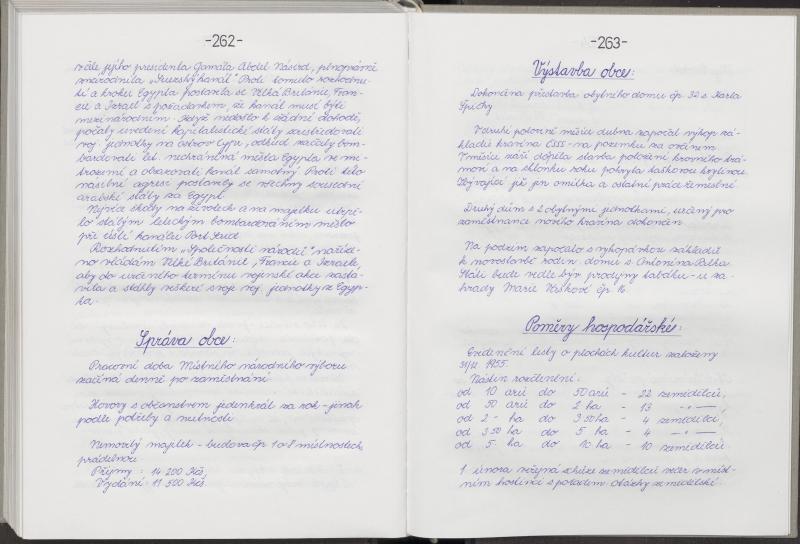 -262-
čele jejího presidenta Gamala Abdel Násira, plnoprávně
znárodnila „Suezský kanál". Proti tomuto rozhodnu-
tí a kroku Egypta postavila se Velká Británie, Fran-
cie a Izrael s požadavkem, že kanál musí býti
mezinárodním. Když nedošlo k žádné dohodě,
počaly uvedené kapitalistické státy soustřeďovati
voj. jednotky na ostrov Cypr, odkud začaly bom-
bardovati let. nechráněná města Egypta se
a obsazovati kanál samotný. Proti této
násilné agresi postavily se všechny sousední
arabské státy za Egypt.
Nejvíce škody na životech a na majetku utrpě-
lo stálým leteckým bombardováním město
při ústí kanálu Port Said.
Rozhodnutím „Společnosti národů" naříze-
no vládám Velké Británie, Francie a Izraele,
aby do určeného termínu vojenské akce zasta-
vila a stáhly veškeré svoje voj. jednotky z Egyp-
ta.
Správa obce:
Pracovní doba Místního národního výboru
začíná denně po zaměstnání.
Hovory s občanstvem jedenkrát za rok - jinak
podle potřeby a nutnosti.
Nemovitý majetek - budova čp. 1 o 8 místnostech,
prádelnou.
Příjmy: 14 200 Kčs,
Vydání: 11 500 Kčs.
-263-
Výstavba obce:
Dokončena přestavba obytného domu čp. 32 s Karla
Špičky
V druhé polovině měsíce dubna započal výkop zá-
kladů kravína ČSSS - na pozemku za ovčínem.
V měsíci září dospěla stavba položení krovního trá-
moví a na sklonku roku pokryta taškovou krytinou.
Zbývající již jen omítka a ostatní práce zemědělné.
Druhý dům s 2 obytnými jednotkami, určený pro
zaměstnance nového kravína dokončen.
Na podzim započato s vykopávkou základů
k novostavbě rodin. domu s. Antonína Palka.
Státi bude vedle býv. prodejny tabáku - u za-
hrady Marie Vrškové čp. 16
Poměry hospodářské:
Evidenční listy o plochách kultur založeny
31/12 1955.
Nástin rozčlenění:
od 10 arů do 50 arů - 22 zemědělců,
od 50 arů do 2 ha - 13 -"-,
od 2 - ha do 3 50 ha - 4 zemědělci,
od 3 50 ha do 5 ha - 4 -"-,
od 5 - ha do 10 ha - 10 zemědělců.
1. února veřejná schůze zemědělců večer v míst-
ním hostinci s pořadem: otázky zemědělské.